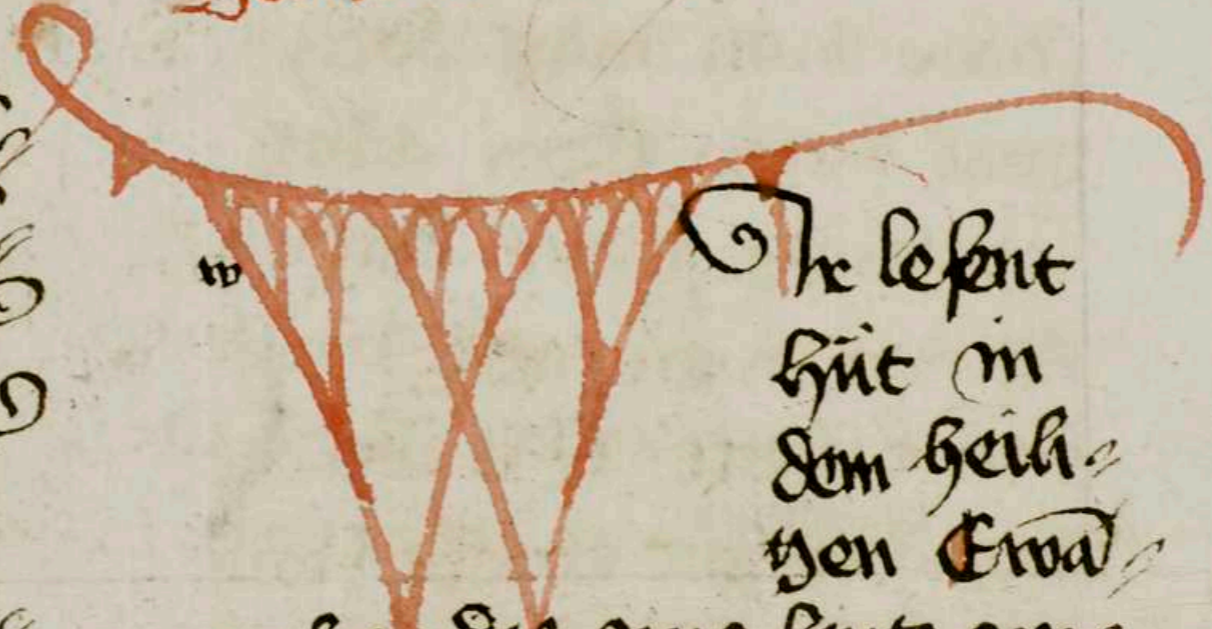 w
Ir lesent
hüt in
dem heili⸗
gen Ewā⸗